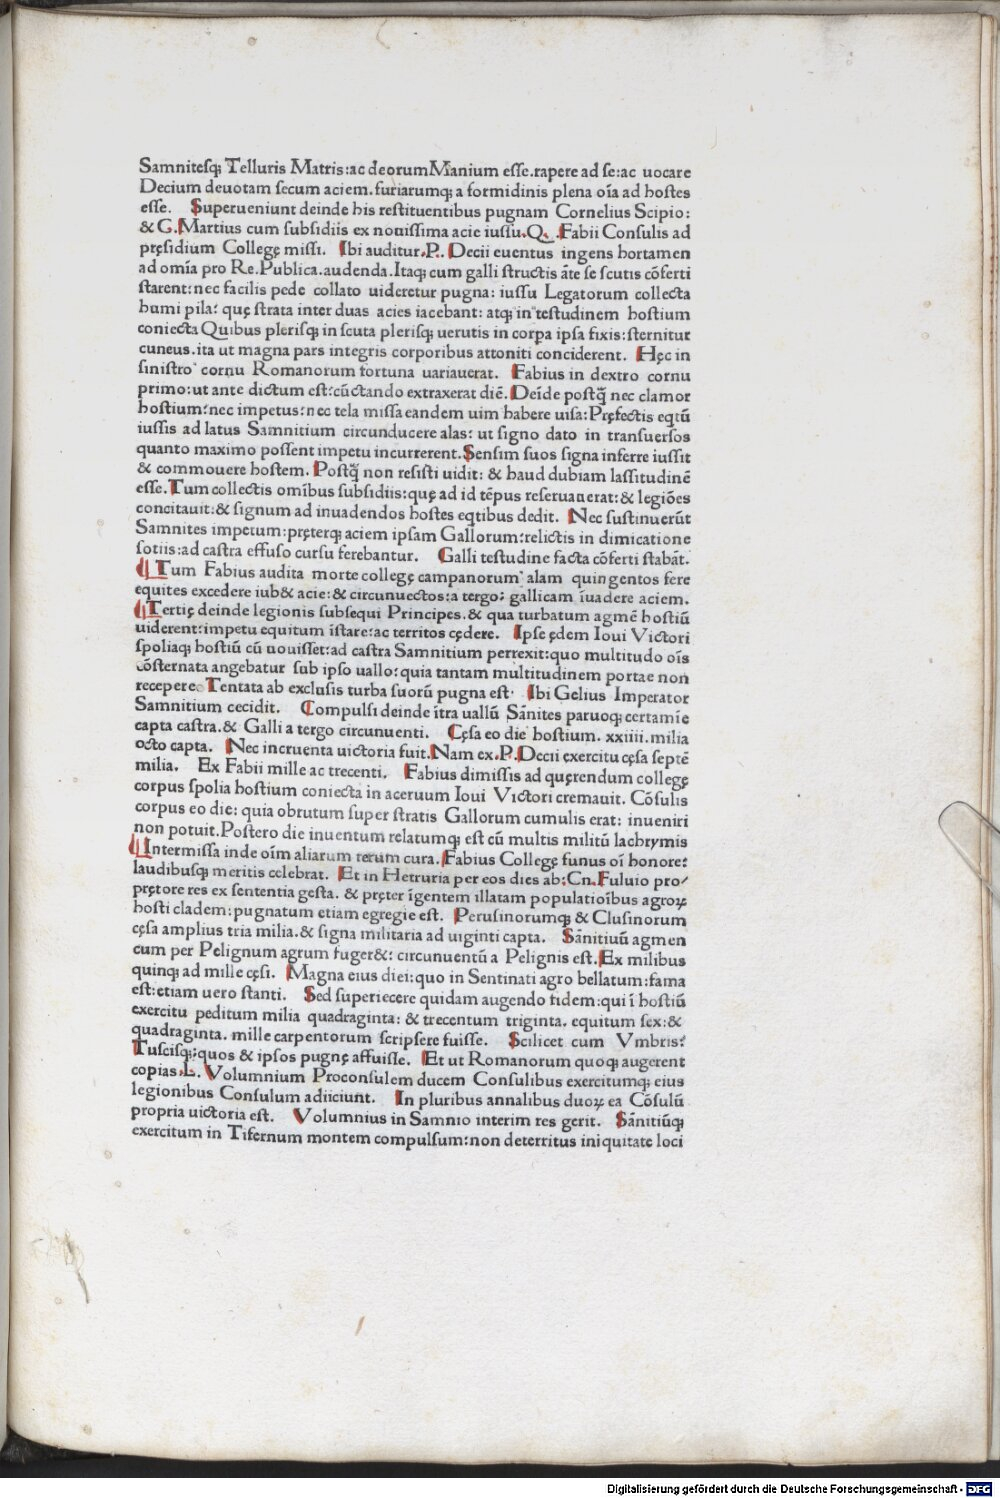 Samnitesq; Telluris Matris:ac deorum Manium esse.rapere ad se:ac uocare
Decium deuotam secum aciem.furiarumq; a formidinis plena oīa ad hostes
esse. Superueniunt deinde his restituentibus pugnam Cornelius Scipio:
& G.Martius cum subsidiis ex nouissima acie iussu.Q. .Fabii Consulis ad
pręsidium Collegę missi. Ibi auditur.P.. Decii euentus ingens hortamen
ad omīa pro Re.Publica.audenda.Itaq; cum galli structis āte se scutis cōferti
starent:nec facilis pede collato uideretur pugna: iussu Legatorum collecta
humi pila: quę strata inter duas acies iacebant: atq; in testudinem hostium
coniecta Quibus plerisq; in scuta plerisq; uerutis in corpa ipsa fixis:sternitur
cuneus.ita ut magna pars integris corporibus attoniti conciderent. Hęc in
sinistro cornu Romanorum fortuna uariauerat. Fabius in dextro cornu
primo:ut ante dictum est:cūctando extraxerat diē. Deīde postq̄ nec clamor
hostium:nec impetus:nec tela missa eandem uim habere uisa:Pręfectis eqtū
iussis ad latus Samnitium circunducere alas: ut signo dato in transuersos
quanto maximo possent impetu incurrerent.Sensim suos signa inferre iussit
& commouere hostem. Postq̄ non resisti uidit: & haud dubiam lassitudinē
esse.Tum collectis omībus subsidiis:quę ad id tēpus reseruauerat:& legiōes
concitauit:& signum ad inuadendos hostes eqtibus dedit. Nec sustinuerūt
Samnites impetum:pręterq; aciem ipsam Gallorum:relictis in dimicatione
sotiis:ad castra effuso cursu ferebantur. Galli testudine facta cōferti stabāt.
Tum Fabius audita morte collegę campanorum alam quingentos fere
equites excedere iub& acie:& circunuectos:a tergo: gallicam īuadere aciem.
Tertię deinde legionis subsequi Principes.& qua turbatum agmē hostiū
uiderent:impetu equitum īstare:ac territos cędere. Ipse ędem Ioui Victori
spoliaq; hostiū cū uouisset:ad castra Samnitium perrexit:quo multitudo oīs
cōsternata angebatur sub ipso uallo:quia tantam multitudinem portae non
recepere. Tentata ab exclusis turba suorū pugna est. Ibi Gelius Imperator
Samnitium cecidit. Compulsi deinde ītra uallū Sānites paruoq; certamīe
capta castra.& Galli a tergo circunuenti. Cęsa eo die hostium. xxiiii.milia
octo capta. Nec incruenta uictoria fuit.Nam ex.P.Decii exercitu cęsa septē
milia. Ex Fabii mille ac trecenti. Fabius dimissis ad quęrendum collegę
corpus spolia hostium coniecta in aceruum Ioui Victori cremauit. Cōsulis
corpus eo die: quia obrutum super stratis Gallorum cumulis erat: inueniri
non potuit.Postero die inuentum relatumq; est cū multis militū lachrymis
Intermissa inde oīm aliarum rerum cura.Fabius Collegę funus oī honore:
laudibusq; meritis celebrat. Et in Hetruria per eos dies ab:Cn.Fuluio pro/
prętore res ex sententia gesta. & pręter īgentem illatam populatioībus agroꝝ
hosti cladem:pugnatum etiam egregie est. Perusinorumq; & Clusinorum
cęsa amplius tria milia.& signa militaria ad uiginti capta. Sānitiuū agmen
cum per Pelignum agrum fuger&: circunuentū a Pelignis est.Ex milibus
quinq; ad mille cęsi. Magna eius diei:quo in Sentinati agro bellatum:fama
est:etiam uero stanti. Sed superiecere quidam augendo fidem:qui ī hostiū
exercitu peditum milia quadraginta: & trecentum triginta. equitum sex:&
quadraginta. mille carpentorum scripsere fuisse. Scilicet cum Vmbris:
Tuscisq;:quos & ipsos pugnę affuisse. Et ut Romanorum quoq; augerent
copias.L. Volumnium Proconsulem ducem Consulibus exercitumq; eius
legionibus Consulum adiiciunt. In pluribus annalibus duoꝝ ea Cōsulū
propria uictoria est. Volumnius in Samnio interim res gerit. Sānitiūq;
exercitum in Tifernum montem compulsum:non deterritus iniquitate loci
Digitalisierung gefördert durch die Deutsche Forschungsgemeinschaft - DFG